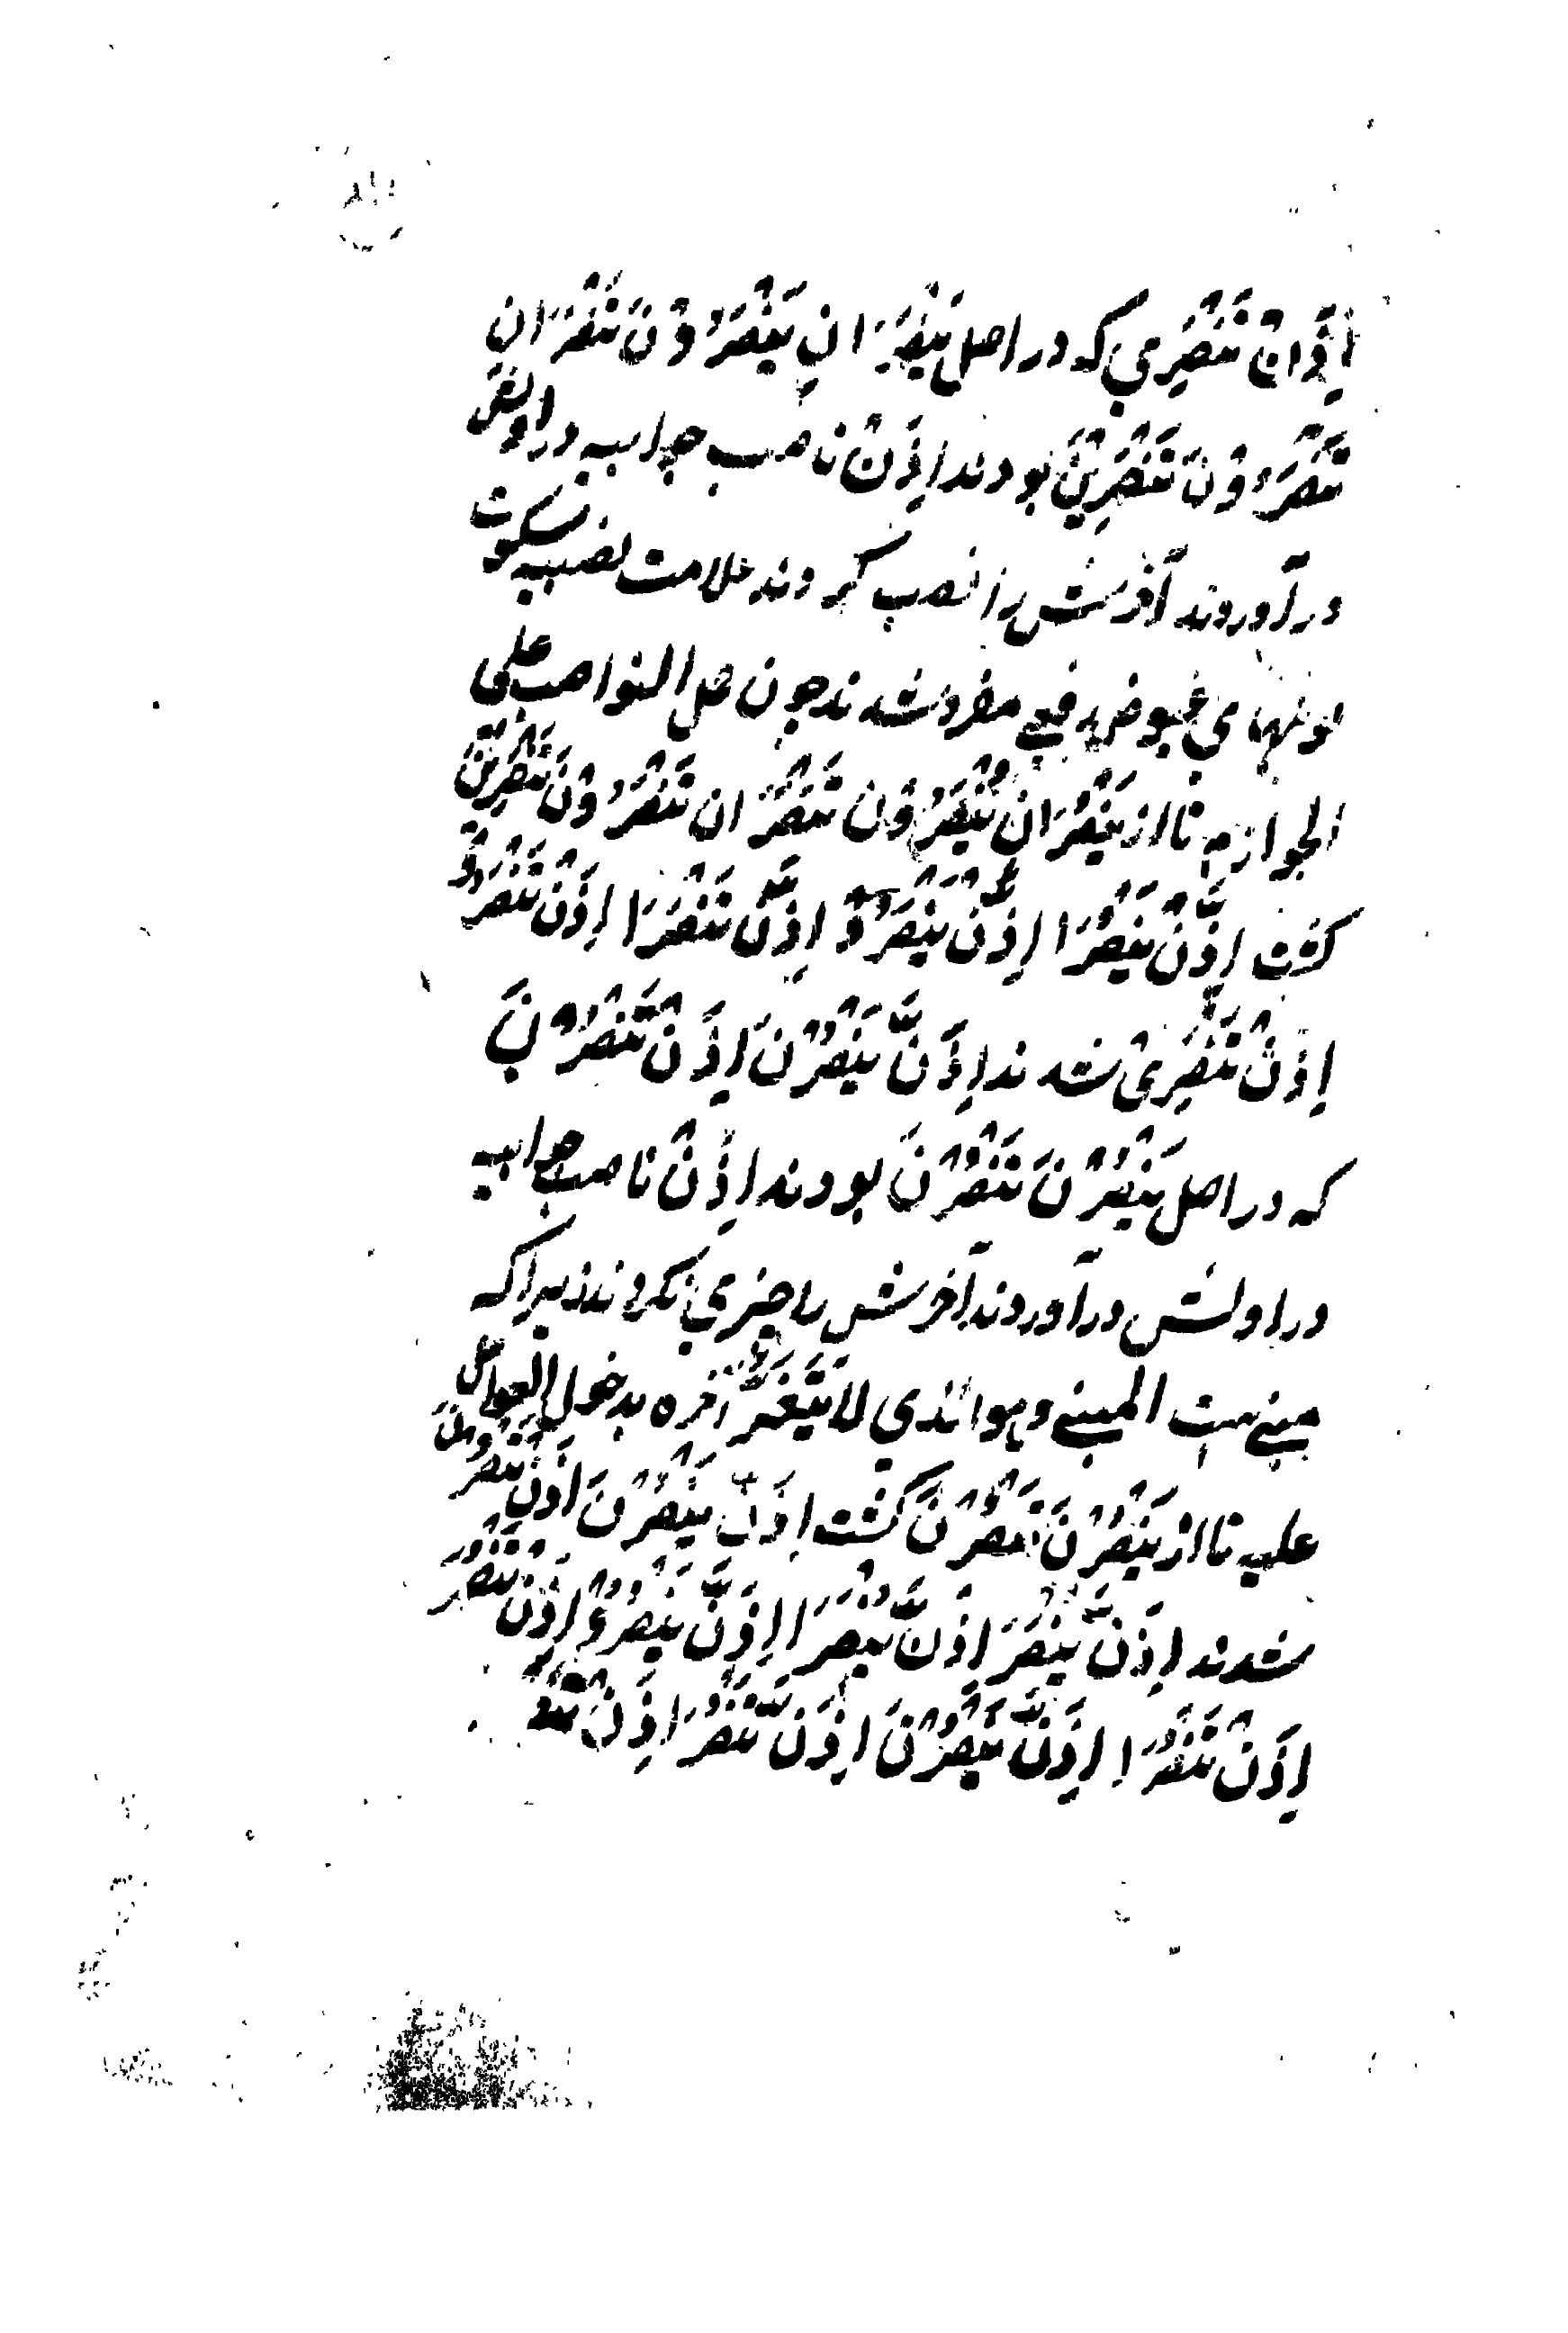 اِذَانْ تَنْصُرِي که در اصل يَنْصُرَانِ يَنْصُرُوْنَ تَنْصُرَانِ
تَنْصُرُوْنَ تَنْصُرِيْنَ بودند اِذَنْ ناصب جوابيه در اولش
در آوردند آخرش را نصب کردند علامت نصبيه سکوت
نونهاي عوض رفعي مفرد شدند چون حمل النواصب علی
الجوازم تا از يَنْصُرَانِ يَنْصُرُوْنَ تَنْصُرَانِ تَنْصُرُوْنَ تَنْصُرِيْنَ
گشت اِذَنْ يَنْصُرَا اِذَنْ يَنْصُرُوْ اِذَنْ تَنْصُرَا اِذَنْ تَنْصُرُوْ
اِذَنْ تَنْصُرِیْ شدند اِذَنْ يَنْصُرْنَ اِذَنْ تَنْصُرْنَ
که در اصل يَنْصُرْنَ تَنْصُرْنَ بودند اِذَنْ ناصب جوابيه
در اولش در آوردند آخرش را چيزي نکردند زيراکه
مبني ست المبني وهو الذي لا يَتَغَيَّرُ آخره بدخول العوامل
عليه تا از يَنْصُرْنَ تَنْصُرْنَ گشت اِذَنْ يَنْصُرْنَ اِذَنْ تَنْصُرْنَ
شدند اِذَنْ يَنْصُرَ اِذَنْ يَنْصُرَا اِذَنْ يَنْصُرُوْ اِذَنْ تَنْصُرَ
اِذَنْ تَنْصُرَا اِذَنْ يَنْصُرْنَ اِذَنْ تَنْصُرَ اِذَنْ